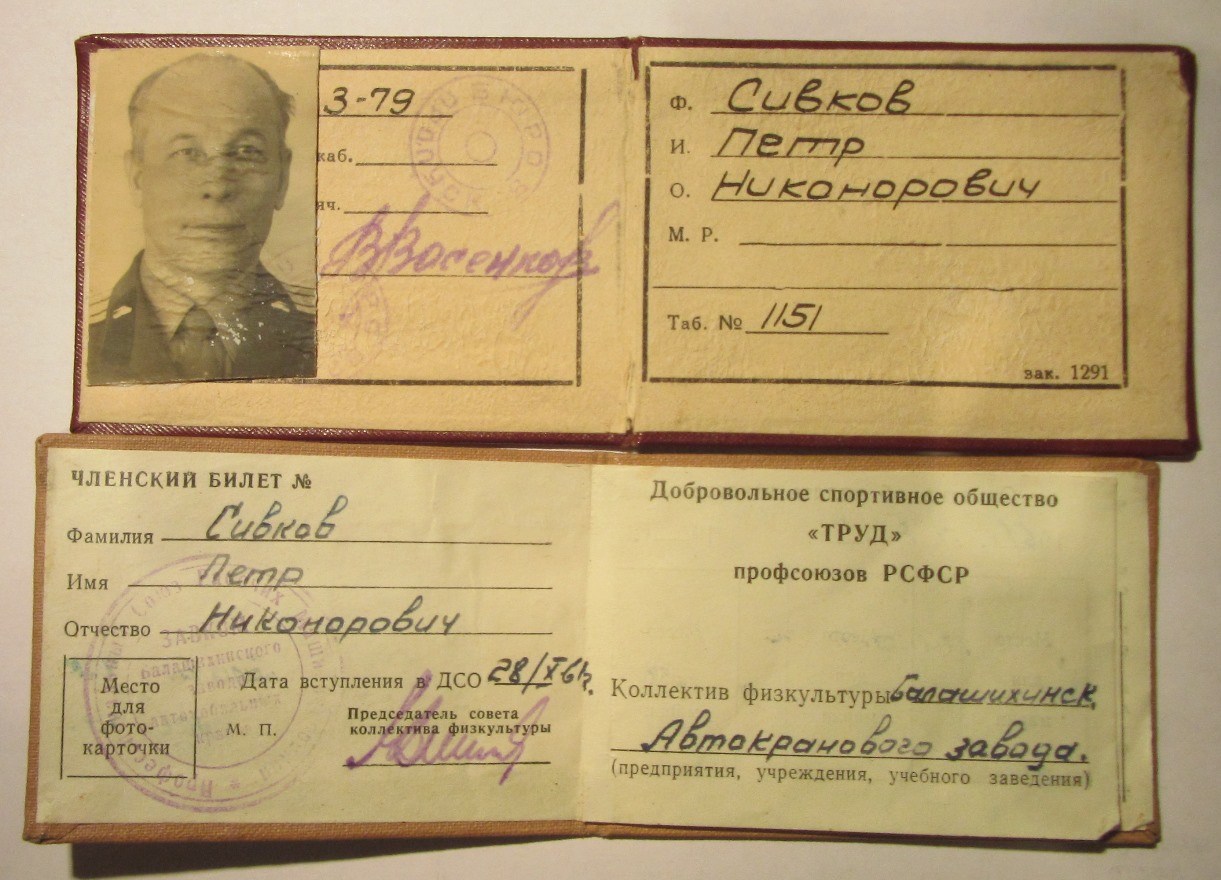 3-79
каб.
яч.
ВВасенков
Ф. Сивков
И. Петр
О. Никонорович
М. Р.
Таб. № 1151
зак. 1291
ЧЛЕНСКИЙ БИЛЕТ №
Фамилия Сивков
Имя Петр
Отчество Никонорович
Место
для
фото-
карточки
Дата вступления в ДСО 28/X 61г.
М. П.
Председатель совета
коллектива физкультуры
ЗАВКОМ
Балашихинского
завода
автомобильных
кранов
Добровольное спортивное общество
«ТРУД»
профсоюзов РСФСР
Коллектив физкультуры Балашихинск.
Автокранового завода.
(предприятия, учреждения, учебного заведения)